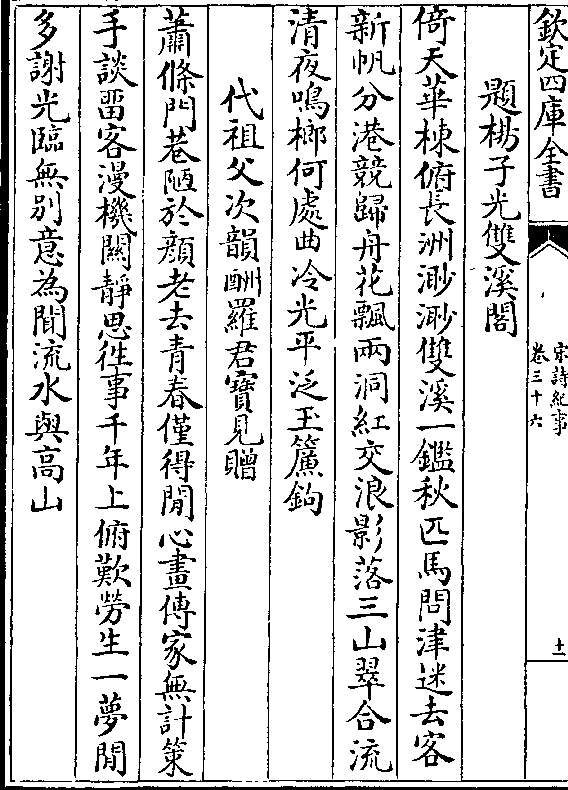 欽定四庫全書
宋詩紀事
卷三十六
十一
題楊子光雙溪閣
倚天華棟俯長洲渺渺雙溪一鑑秋匹馬問津迷去客
新帆分港競歸舟花飄兩洞紅交浪影落三山翠合流
清夜鳴榔何處曲冷光平泛玉簾鉤
代祖父次韻酬羅君寶見贈
蕭條門巷陋於顔老去青春僅得閒心畫傳家無計策
手談畱客漫機關靜思徃事千年上俯歎勞生一夢間
多謝光臨無別意為聞流水與高山